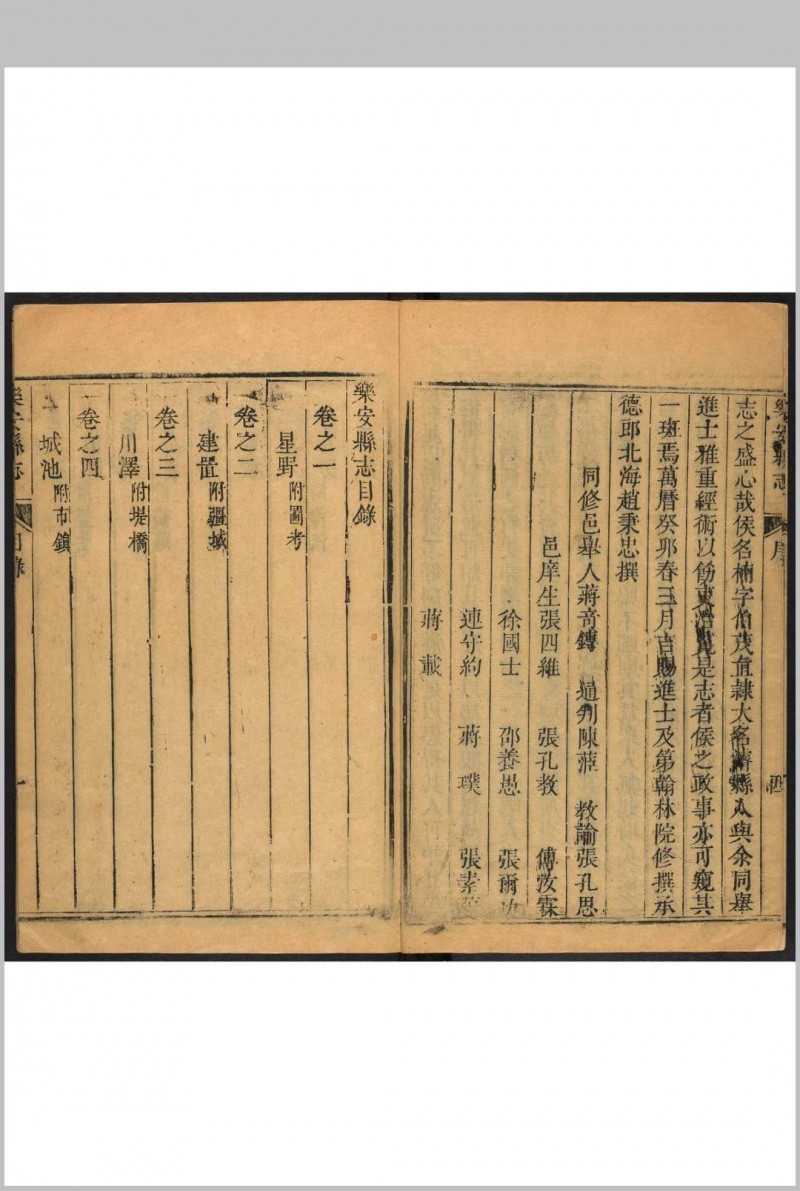 樂安縣志
序
四
志之盛心哉侯名楠字伯茂直隸大名濬縣人與余同舉
進士雅重經術以飭吏治覽是志者侯之政事亦可窺其
一斑焉萬曆癸卯春三月吉賜進士及第翰林院修撰承
德郎北海趙秉忠撰
同修邑舉人蔣奇鏄 通判陳蓙 教諭張孔思
邑庠生張四維 張孔教 傅汝霖
徐國士 邵養愚 張爾
連守約 蔣璞 張素
蔣載
樂安縣志目錄
卷之一
星野附圖考
卷之二
建置附疆域
卷之三
川澤附堤橋
卷之四
城池附市鎮
樂安縣志
目錄
一